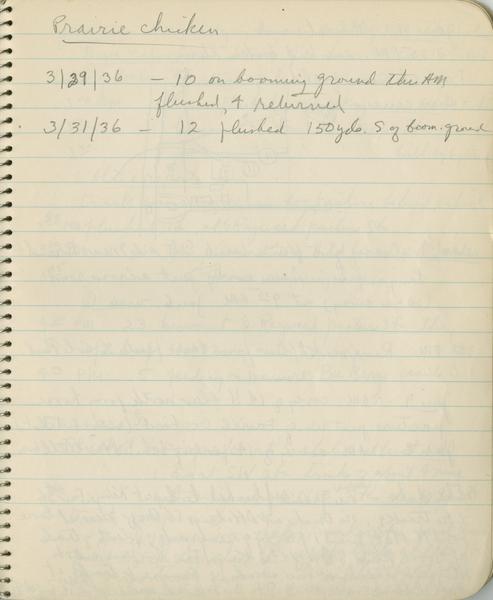 Prairie chicken
3/29/36 - 10 on booming ground this AM
flushed, 4 returned
3/31/36 - 12 flushed 150 yds. S of boom. ground